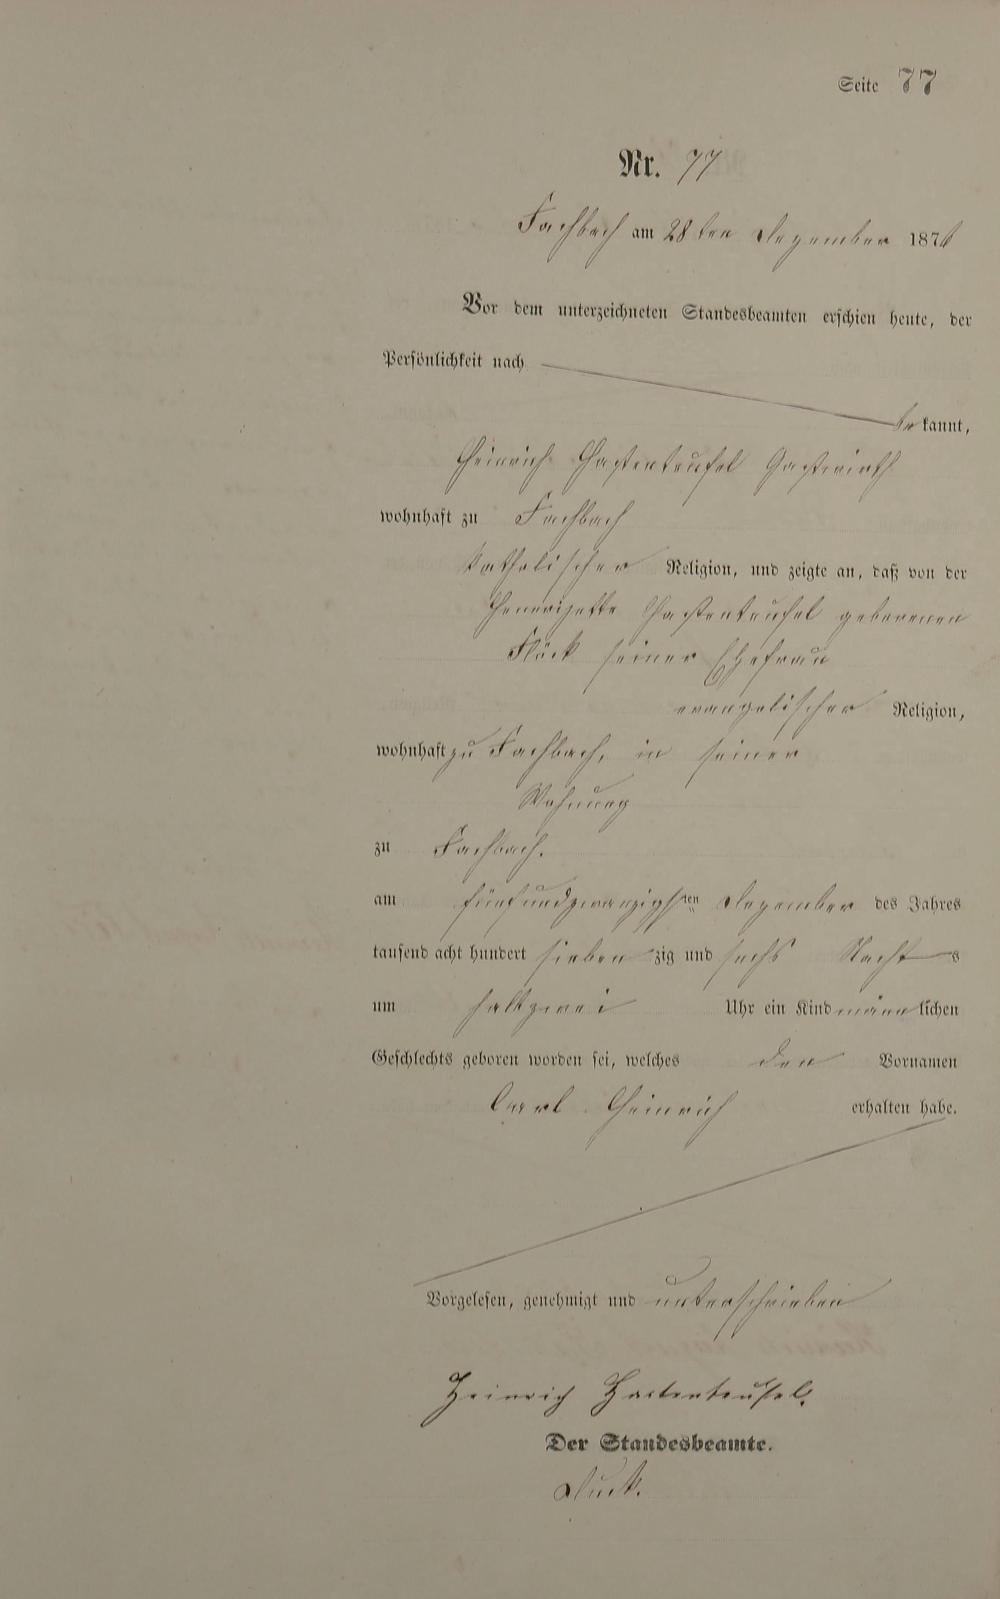 Seite 77
Nr. 77
Fachbach am 28ten Dezember 1876
Vor dem unterzeichneten Standesbeamten erschien heute, der
Persönlichkeit nach
be kannt,
Heinrich Hastenteufel Gastwirth
wohnhaft zu Fachbach
katholischer Religion, und zeigte an, daß von der
Henrizette Hastenteufel geborenen
Flöck seiner Ehefrau
evangelischer Religion,
wohnhaft zu Fachbach, in seiner
Wohnung
zu Fachbach.
am fünfundzwanzigsten Dezember des Jahres
tausend acht hundert sieben zig und sechs Nacht s
um halbzwei Uhr ein Kind männ lichen
Geschlechts geboren worden sei, welches den Vornamen
Carl Heinrich erhalten habe.
Vorgelesen, genehmigt und unterschrieben
Heinrich Hastenteufel.
Der Standesbeamte.